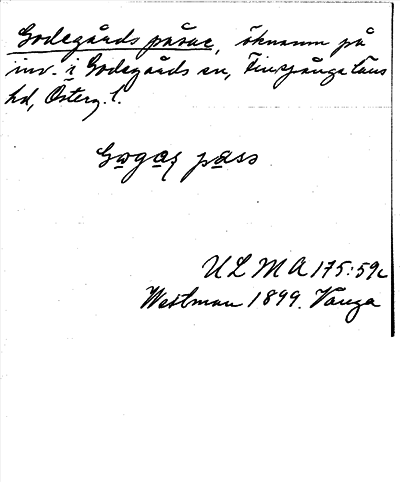 Godegårds påsar, öknamn på
inv. i Godegårds sn, Finspånga läns
hd, Österg. l.
Gogas pass
ULMA 175:59c
Westman 1899. Vånga